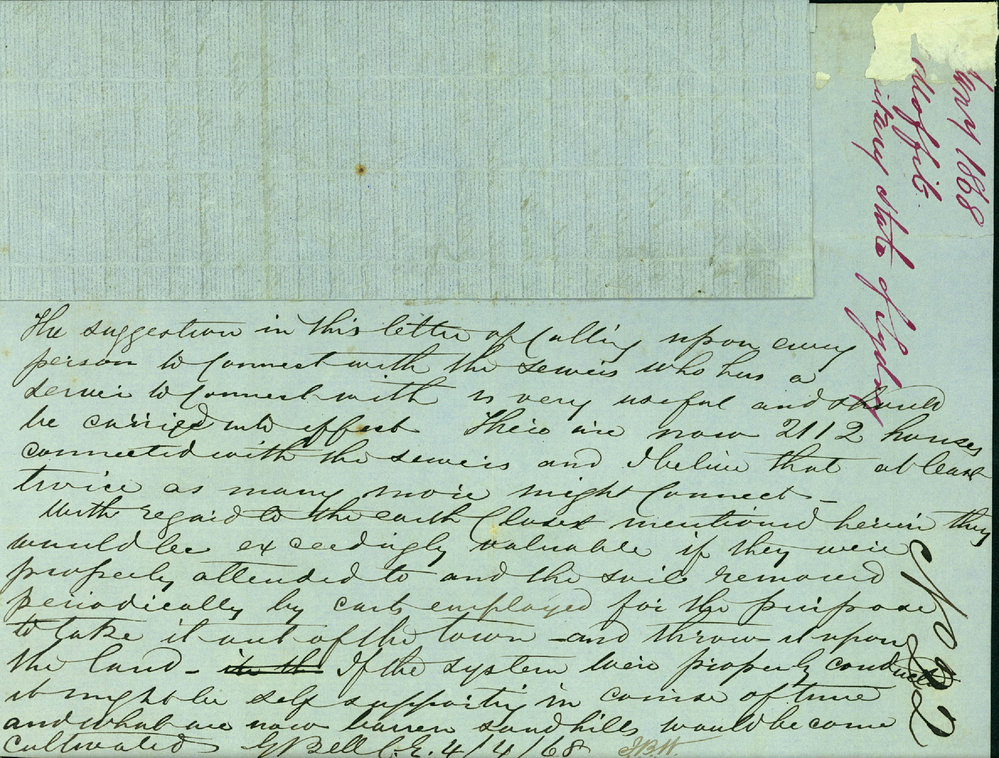 The suggestion in this letter of Calling upon every
person to Connect with the sewers who has a
sewer to Connect with is very useful and should
be carried into effect There are now 2112 houses
connected with the sewers and I believe that at least
twice as many more might Connect –
With regard to the earth Closet mentioned herein they
would be exceedingly valuable if they were
properly attended to and the soils removed
periodically by carts employed for the purpose
to take it out of the town – and throw it upon
the land – If the system were properly conducted
it might be self supporting in course of time
and what are now barren sand hills would become
cultivated G Bell C.E. 4/4/68 J.B.W.
1868
Moffit
itary State of Sydney
No 32